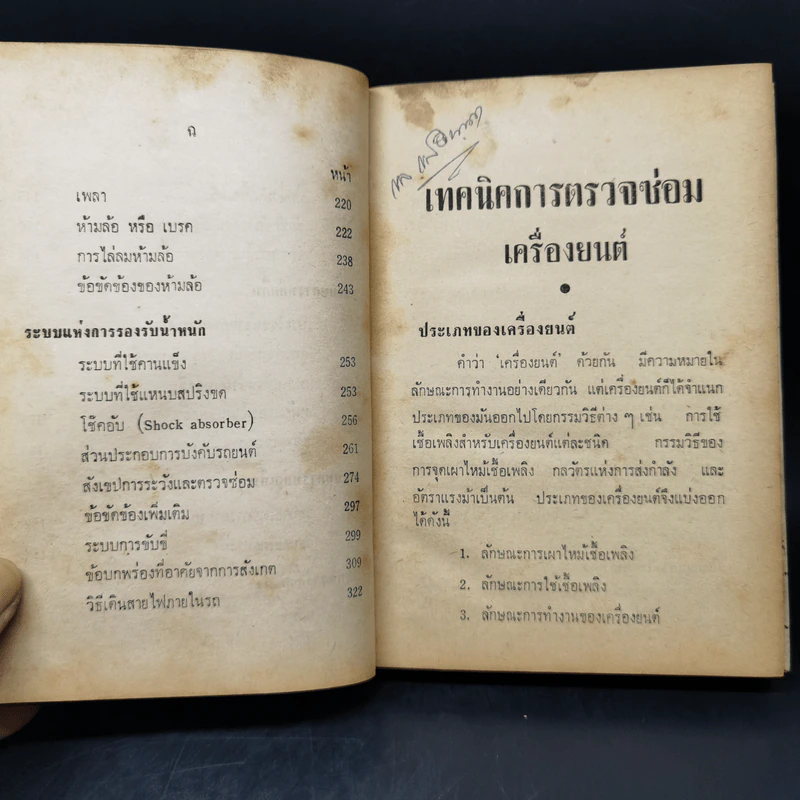 ฉ
หน้า
เพลา 220
ห้ามล้อ หรือ เบรค 222
การไล่ลมห้ามล้อ 238
ข้อขัดข้องของห้ามล้อ 243
ระบบแห่งการรองรับน้ำหนัก
ระบบที่ใช้คานแข็ง 253
ระบบที่ใช้แหนบสปริงขด 253
โช๊คอับ (Shock absorber) 256
ส่วนประกอบการบังคับรถยนต์ 261
สังเขปการระวังและตรวจซ่อม 274
ข้อขัดข้องเพิ่มเติม 297
ระบบการขับขี่ 299
ข้อบกพร่องที่อาศัยจากการสังเกต 309
วิธีเดินสายไฟภายในรถ 322
เทคนิคการตรวจซ่อม
เครื่องยนต์
ประเภทของเครื่องยนต์
คำว่า 'เครื่องยนต์' ด้วยกัน มีความหมายใน
ลักษณะการทำงานอย่างเดียวกัน แต่เครื่องยนต์ก็ได้จำแนก
ประเภทของมันออกไปโดยกรรมวิธีต่าง ๆ เช่น การใช้
เชื้อเพลิงสำหรับเครื่องยนต์แต่ละชนิด กรรมวิธีของ
การจุดเผาไหม้เชื้อเพลิง กลวัตรแห่งการส่งกำลัง และ
อัตราแรงม้าเป็นต้น ประเภทของเครื่องยนต์จึงแบ่งออก
ได้ดังนี้
1. ลักษณะการเผาไหม้เชื้อเพลิง
2. ลักษณะการใช้เชื้อเพลิง
3. ลักษณะการทำงานของเครื่องยนต์